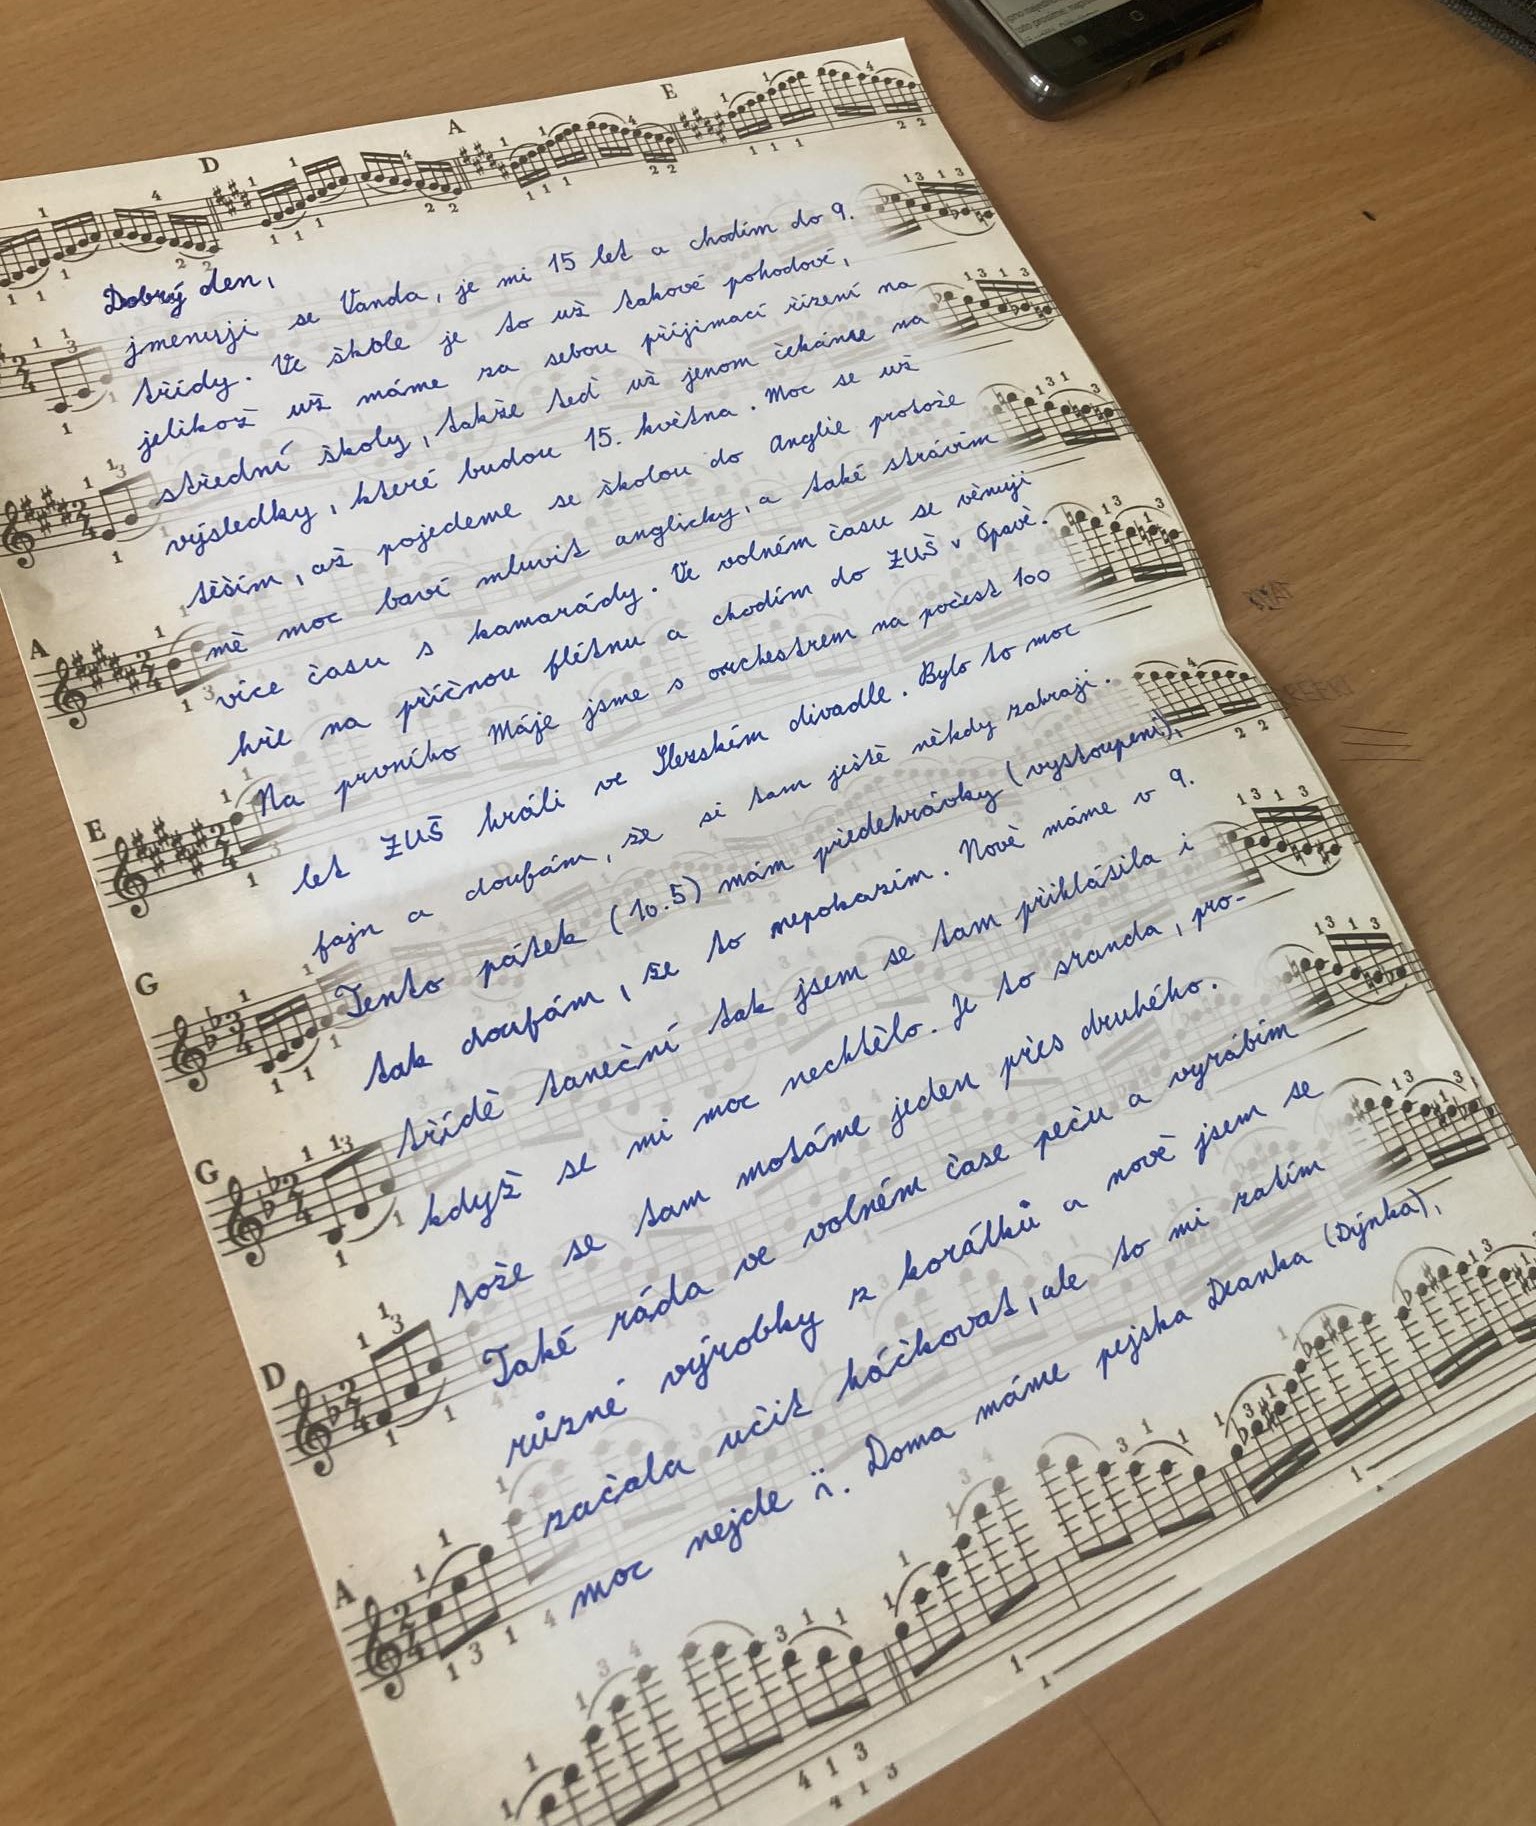 Dobrý den,
jmenuji se Vanda, je mi 15 let a chodím do 9.
třídy. Ve škole je to už takové pohodové,
jelikož už máme za sebou příjimací řízení na
střední školy, takže teď už jenom čekáme na
výsledky, které budou 15. května. Moc se už
těším, až pojedeme se školou do Anglie protože
mě moc baví mluvit anglicky, a také strávím
více času s kamarády. Ve volném času se věnuji
hře na příčnou flétnu a chodím do ZUŠ v Opavě.
Na prvního Máje jsme s orchestrem na počest 100
let ZUŠ hráli ve Slezském divadle. Bylo to moc
fajn a doufám, že si tam ještě někdy zahraji.
Tento pátek (10.5) mám předehrávky (vystoupení),
tak doufám, že to nepokazím. Nově máme v 9.
třídě taneční tak jsem se tam přihlásila i
když se mi moc nechtělo. Je to sranda, pro-
tože se tam motáme jeden přes druhého.
Také ráda ve volném čase peču a vyrábím
různé výrobky z korálků a nově jsem se
začala učit háčkovat, ale to mi zatím
moc nejde :(. Doma máme pejska Deanka (Dýnka),